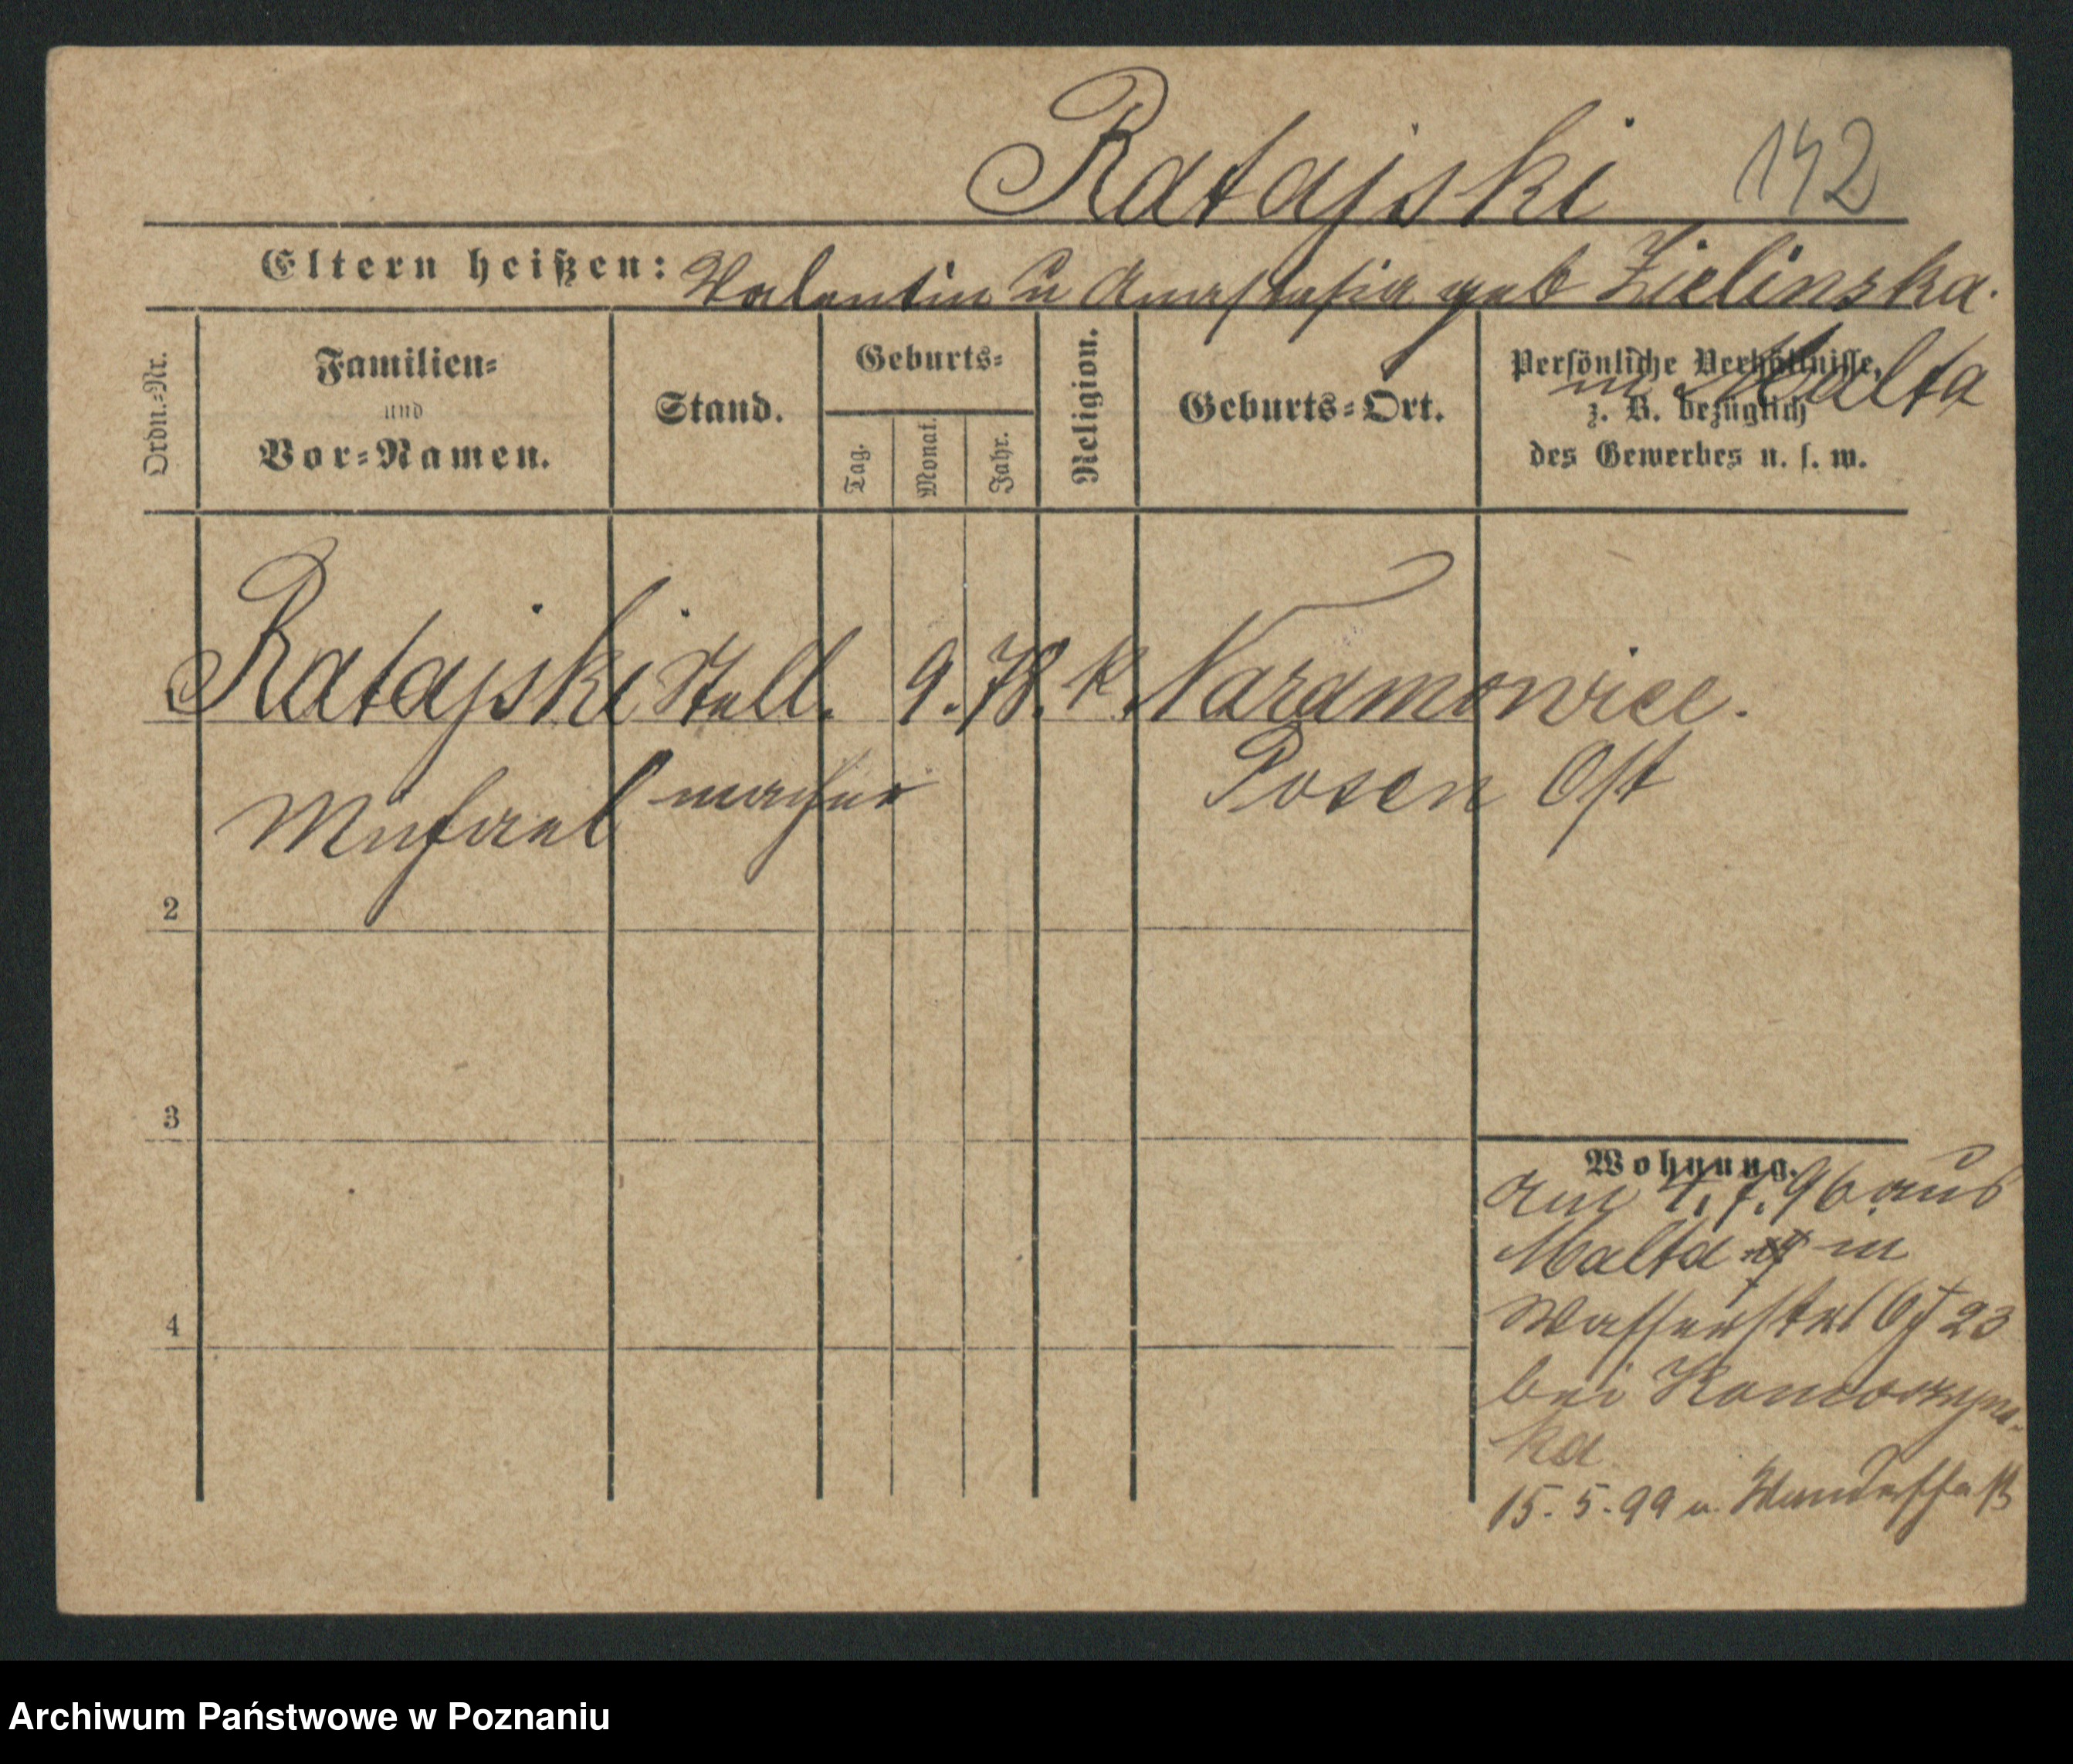 Ratajski 142
Eltern heißen: Valentin u Anastasia geb Zielinska.
in Malta
Ordn.-Nr.
Familien-
und
Vor-Namen.
Stand.
Geburts-
Tag.
Monat.
Jahr.
Religion.
Geburts-Ort.
Persönliche Verhältnisse,
z. B. bezüglich
des Gewerbes u. s. w.
Ratajski Stell. 9. 78. k. Naramowice.
Michael macher Posen Ost
2
3
4
Wohnung.
am 1. 7. 96 aus
Malta in
Wasserstr 23
bei
ka
15. 5. 99 a. Wanderschaft
Archiwum Państwowe w Poznaniu